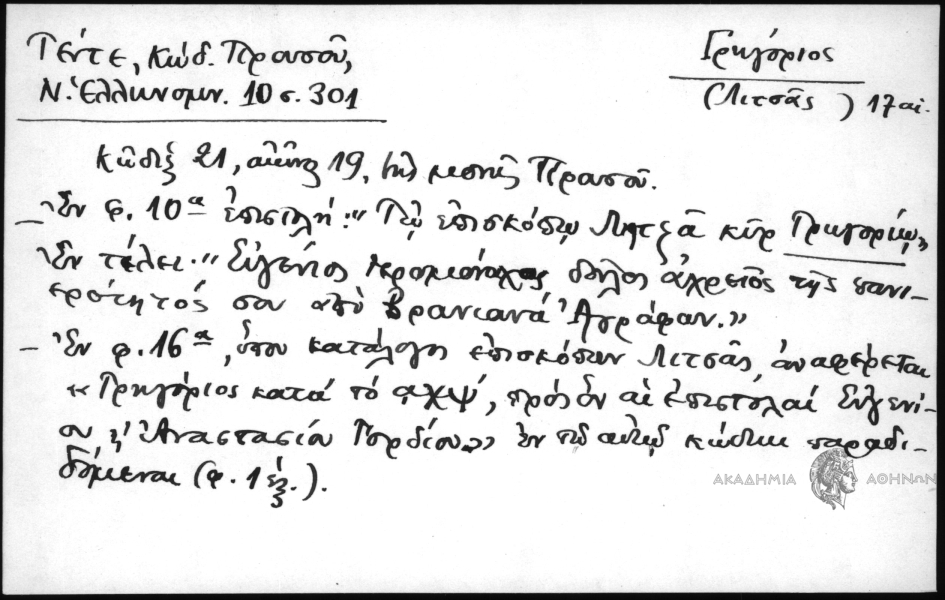 Γέντε, Κώδ. Προυσοῦ,
Ν. Ἑλληνομν. 10 σ. 301
Γρηγόριος
(Λιτσᾶς) 17 αἰ.
Κῶδιξ 21, αἰῶνος 19, τῆς μονῆς Προυσοῦ.
– Ἐν φ. 10α ἐπιστολή: "Τῷ ἐπισκόπῳ Λητζᾶ κὺρ Γρηγορίῳ"
Ἐν τέλει· "Εὐγένιος ἱερομόναχος δοῦλος ἀχρεῖος τῆς πανι-
ερότητός σου ἀπὸ Βρανιανά Ἀγράφων."
– Ἐν φ. 16α, ὅπου κατάλογος ἐπισκόπων Λιτσᾶς, ἀναφέρεται
"Γρηγόριος κατὰ τὸ αχψ, πρὸς ὃν αἱ ἐπιστολαὶ Εὐγενί-
ου ἢ Ἀναστασίου Γορδίου" ἐν τῷ αὐτῷ κώδικι παραδι-
δόμεναι (φ. 1 ἑξ.).
ΑΚΑΔΗΜΙΑ ΑΘΗΝΩΝ